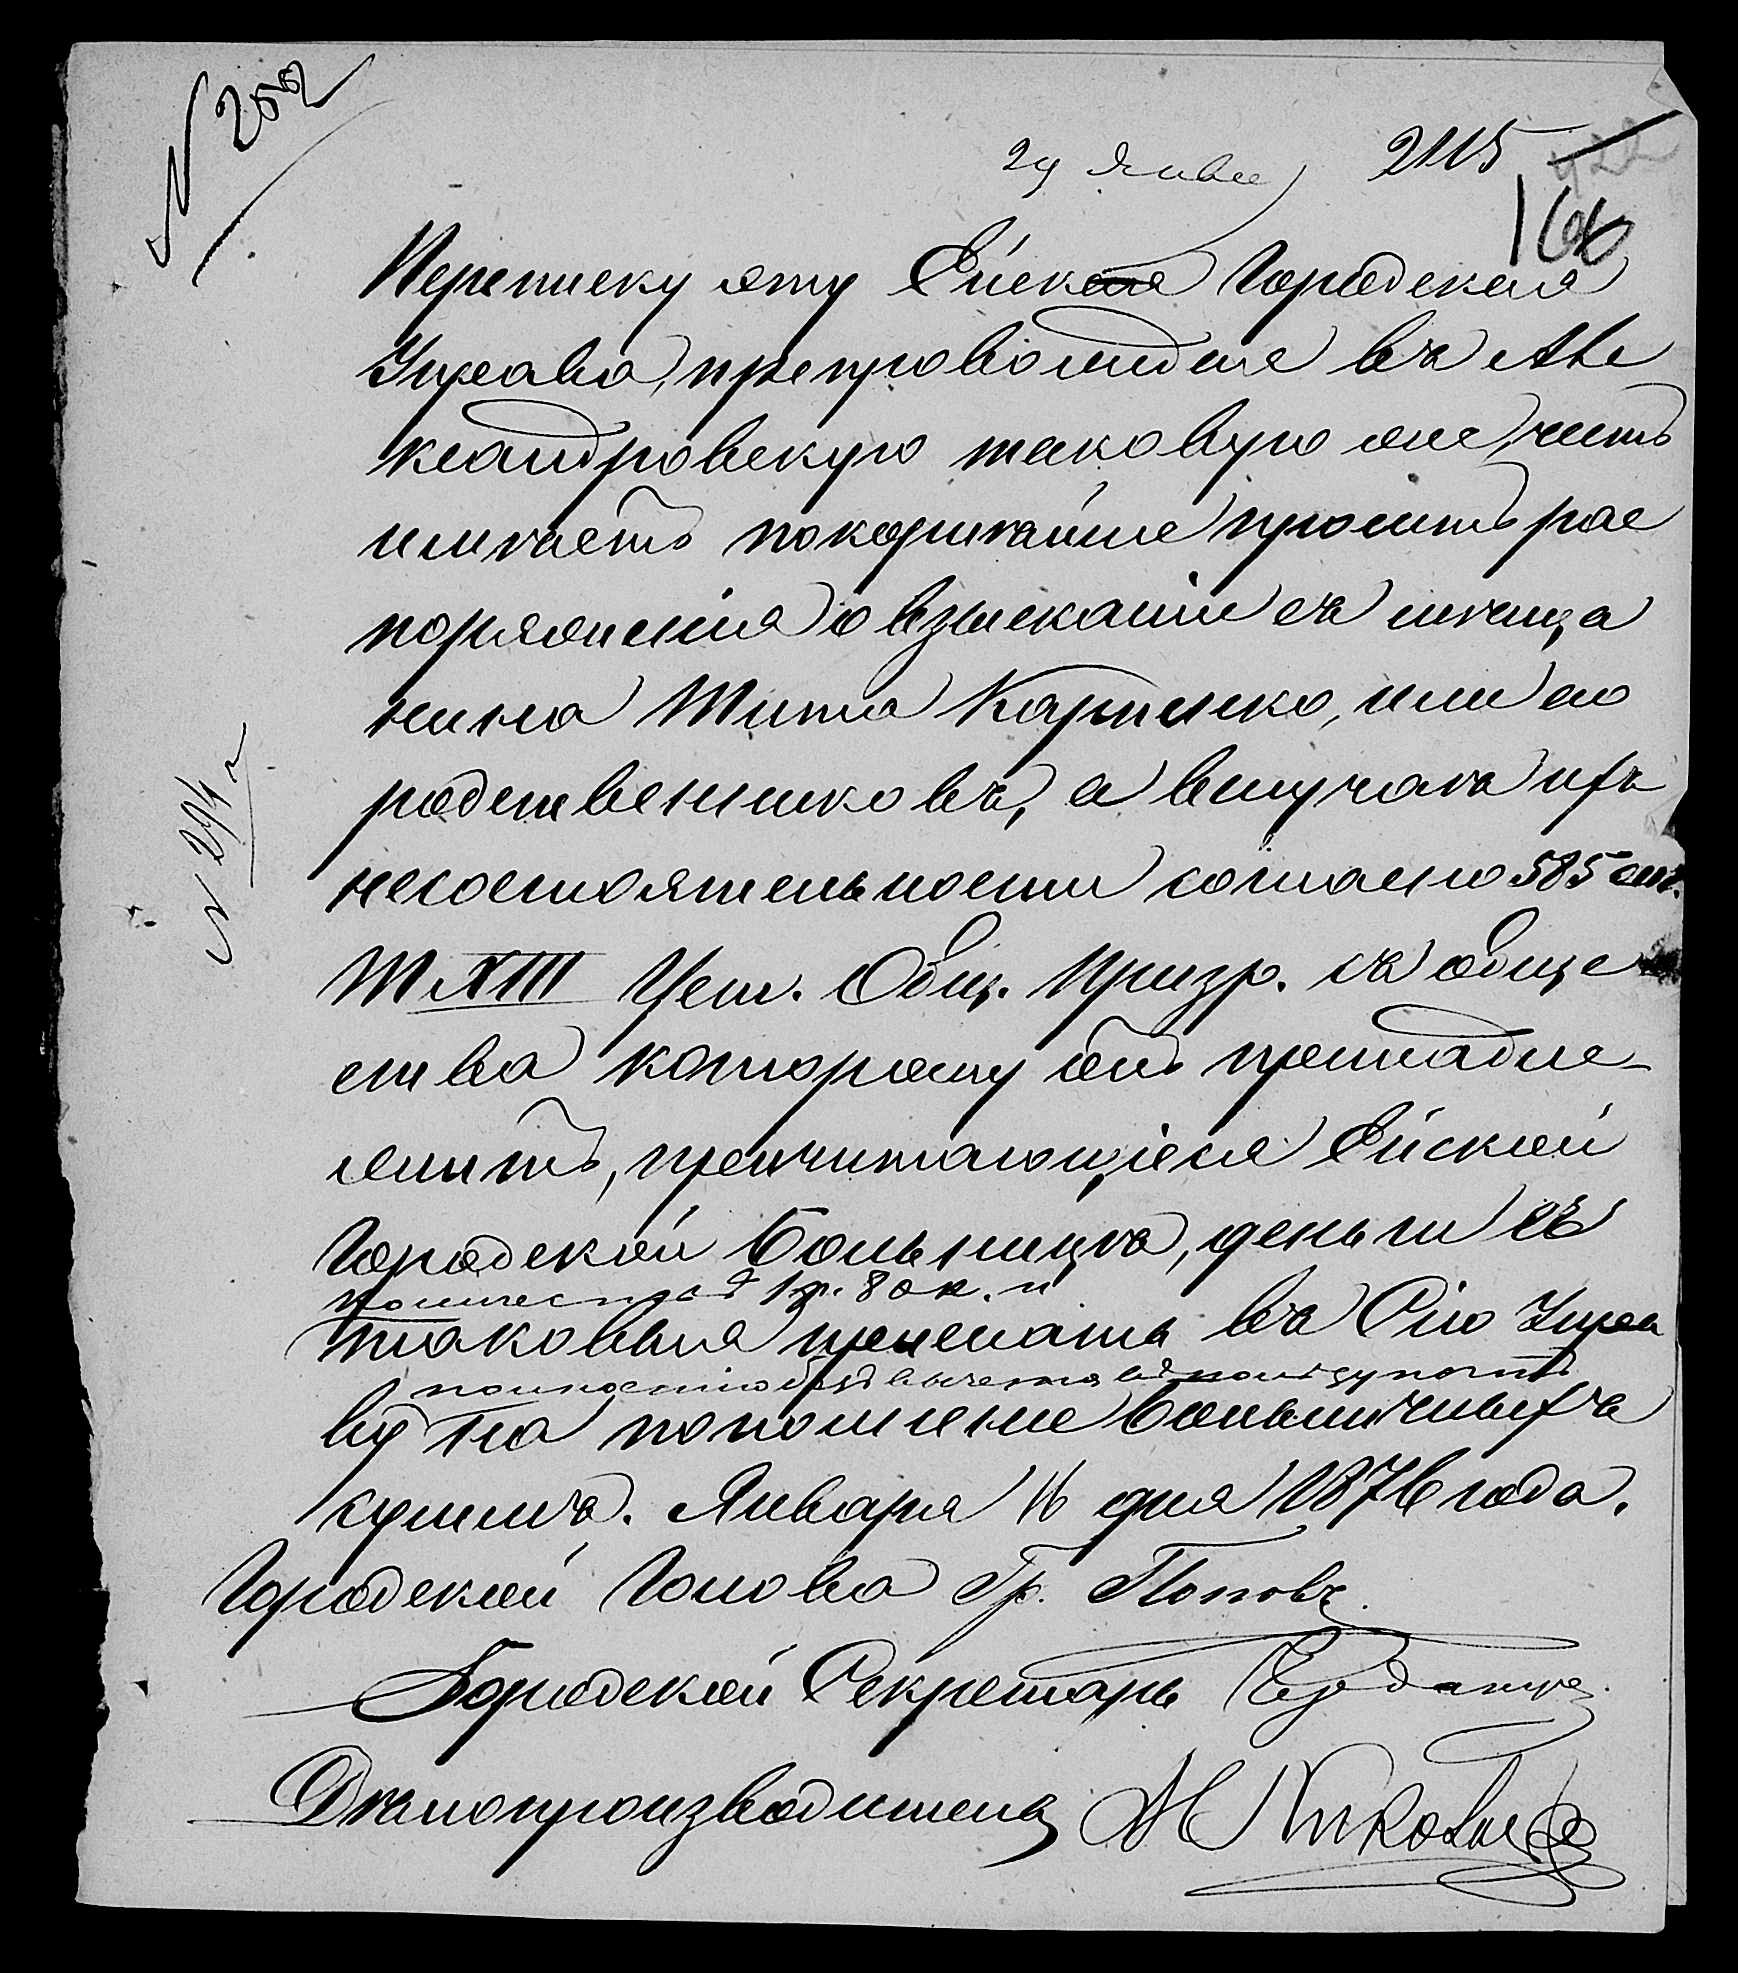 N 252
29 Янва 2115
166
Переписку эту Ейская Городская
Управа, препровождая въ Але
ксандровскую таковую же, честь
имѣетъ покорнѣйше просить рас
поряженія о взысканіи съ мѣща
нина Тита Карпенко, или его
родственниковъ, а въ случаѣ ихъ
несостоятельности согласно 585 ст.
Т XIII Уст. Общ. Призр. съ обще
ства которому онъ принадле-
житъ, причитающіяся Ейской
Городской Больницѣ, деньги въ
количествѣ 1 р. 80 к. и
таковыя прислать въ Сію Упра
полностію безъ вычета въ почту
ву на пополненіе больничныхъ
суммъ. Января 16 дня 1876 года.
Городской Голова Гр. Поповъ
Городской Секретарь
Дѣлопроизводитель
N 294